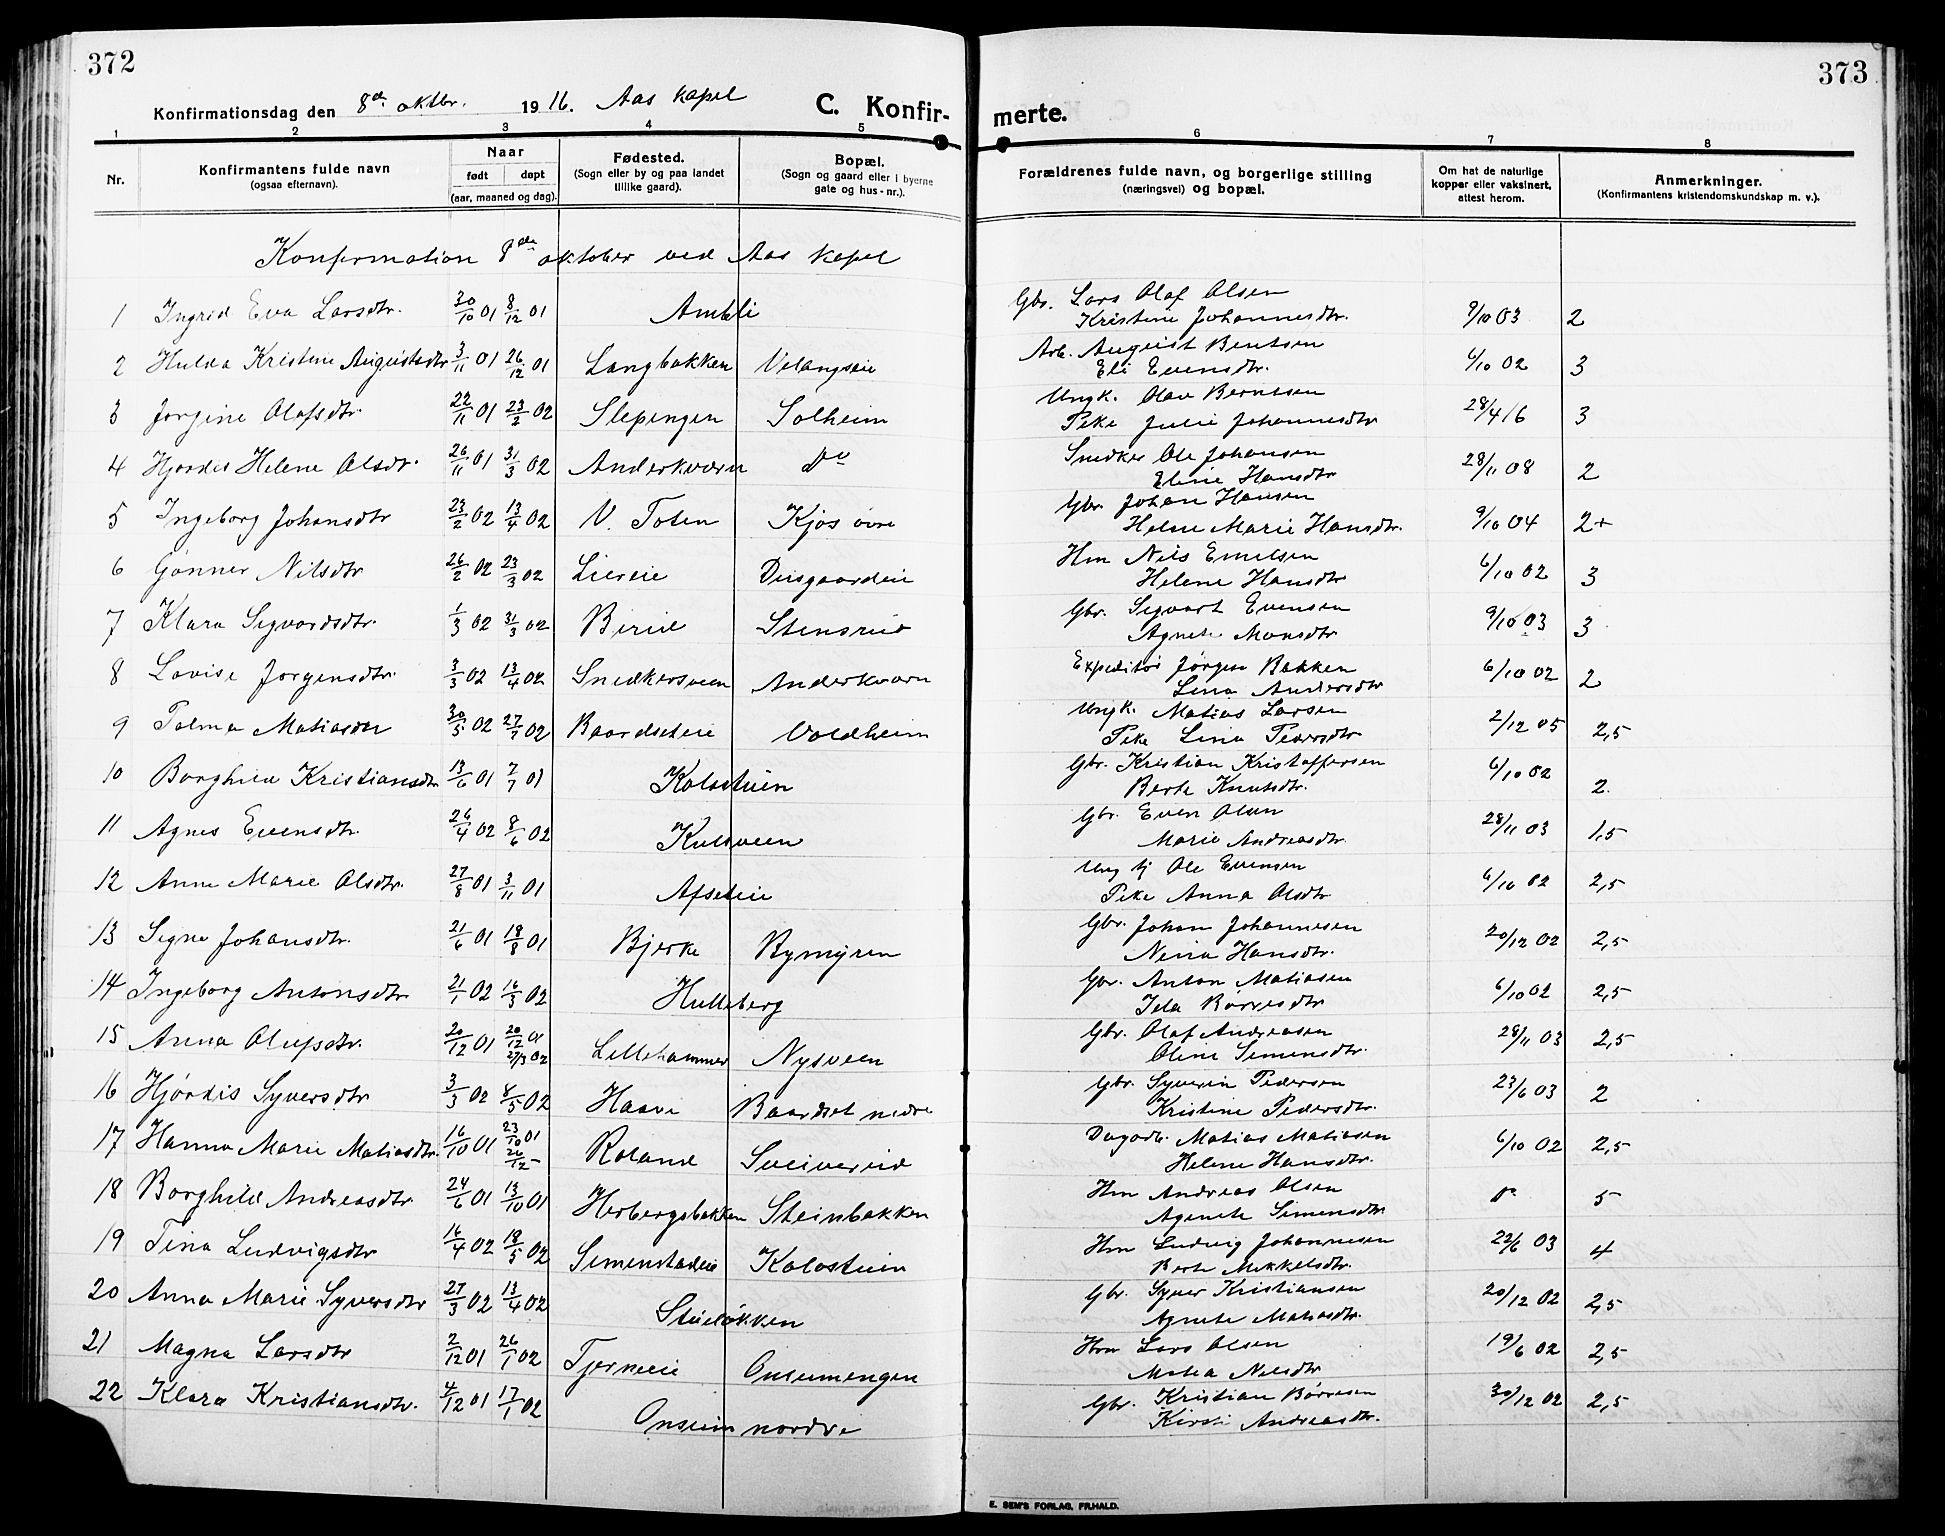 372
373
Konfirmationsdag den 8de oktbr. 1916. Aas kapel C. Konfir-merte.
1 2 3 4 5 6 7 8
Nr.
Konfirmantens fulde navn
(ogsaa efternavn).
Naar
født døpt
(aar, maaned og dag).
Fødested.
(Sogn eller by og paa landet
tillike gaard).
Bopæl.
(Sogn og gaard eller i byerne
gate og hus-nr.).
Forældrenes fulde navn, og borgerlige stilling
(næringsvei) og bopæl.
Om hat de naturlige
kopper eller vaksinert,
attest herom.
Anmerkninger.
(Konfirmantens kristendomskundskap m. v.).
Konfirmation 8de oktober ved Aas kapel
1 Ingrid Eva Larsdtr. 30/10 01 8/12 01 Ambli Gbr. Lars Olaf Olsen 9/10 03 2
Kristine Johannesdtr.
2 Hulda Kristine Augustsdtr 3/11 01 26/12 01 Langbakken Velangseie Arb. August Bentsen 6/10 02 3
Eli Evensdtr.
3 Jørgine Olafsdtr. 22/11 01 23/2 02 Slepengen Solheim Ungk. Olav Berntsen 28/4 16 3
Pike Julie Johannesdtr
4 Hjørdis Helene Olsdtr. 26/11 01 31/3 02 Anderkværn Do Snedker Ole Johansen 28/11 08 2
Eline Hansdtr
5 Ingeborg Johansdtr 23/2 02 13/4 02 V. Toten Kjos øvre Gbr. Johan Hansen 9/10 04 2+
Helene Marie Hansdtr.
6 Gønner Nilsdtr 26/2 02 23/3 02 Liereie Diesgaardeie Hm Nils Emelsen 6/10 02 3
Helene Hansdtr
7 Klara Sigvardsdtr. 1/3 02 31/3 02 Birid Stensrud Gbr. Sigvart Evensen 9/10 03 3
Agnete Monsdtr
8 Lovise Jørgensdtr. 3/3 02 13/4 02 Snedkersveen Anderkværn Expeditør Jørgen Bakken 6/10 02 2
Lina Andersdtr
9 Tolma Matiasdtr 30/5 02 27/7 02 Baardseteie Voldheim Ungk. Matias Larsen 2/12 05 2,5
Pike Lina Pedersdtr
10 Borghild Kristiansdtr 13/6 01 7/7 01 Kolostuen Gbr. Kristian Kristoffersen 6/10 02 2.
Berte Knutsdtr.
11 Agnes Evensdtr. 26/4 02 8/6 02 Kulsveen Gbr. Even Olsen 28/11 03 1,5
Marie Andreasdtr.
12 Anne Marie Olsdtr. 27/8 01 3/11 01 Afseteie Ungkj Ole Evensen 6/10 02 2,5
Pike Anna Olsdtr
13 Signe Johansdtr. 21/6 01 18/8 01 Bjerke Bymyren Gbr. Johan Johannesen 20/12 02 2,5
Nina Hansdtr.
14 Ingeborg Antonsdtr 21/1 02 16/3 02 Hulleberg Gbr. Anton Matiasen 6/10 02 2,5
Ida Børresdtr
15 Anna Olufsdtr. 20/12 01 20/12 01 27/3 02 Lillehammer Nysveen Gbr. Olaf Andreasen 28/11 03 2,5
Oline Simensdtr.
16 Hjørdis Syversdtr 3/3 02 4/5 02 Haave Baardset nedre Gbr. Syverin Pedersen 23/6 03 2
Kristine Pedersdtr.
17 Hanna Marie Matiasdtr. 16/10 01 23/10 01 26/12 - Roland Sveiverud Dagarb. Matias Matiasen 6/10 02 2,5
Helene Hansdtr.
18 Borghild Andreasdtr 24/6 01 13/10 01 Herbergsbakken Steinbakken Hm Andreas Olsen Do 5
Agnete Simensdtr
19 Tina Ludvigsdtr 16/4 02 18/5 02 Simenstadeie Kolostuen Hm Ludvig Johannesen 22/6 03 4
Berte Mikkelsdtr.
20 Anna Marie Syversdtr 27/3 02 13/4 02 Stueløkken Gbr. Syver Kristiansen 20/12 02 2,5
Agnete Matiasdtr.
21 Magna Larsdtr 2/12 01 26/1 02 Tjerneeie Onsumengen Hm Lars Olsen 19/6 02 2,5
Matea Nilsdtr
22 Klara Kristiansdtr. 4/12 01 17/1 02 Onsum nordre Gbr. Kristian Børresen 30/12 02 2,5
Kirsti Andreasdtr.
E. SEM'S FORLAG, FR.HALD.